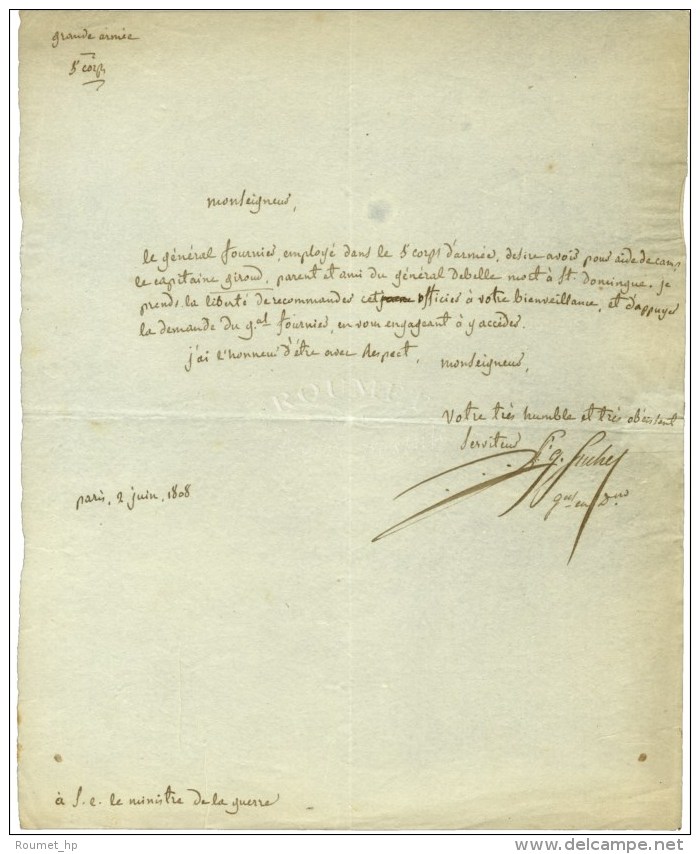 grande armée
5e corps
monseigneur,
le général fournier, employé dans le 5 corps d'armée, desire avoir pour aide de camp
le capitaine giroud, parent et ami du général Debelle mort à St. Domingue. je
prends la liberté de recommander cet officier à votre bienveillance, et d'appuyer
la demande du gal fournier, en vous engageant à y accéder.
j'ai l'honneur d'être avec Respect,
monseigneur,
ROUMET
Votre très humble et très obeissant
Serviteur
Suchet
paris, 2 juin, 1808
à S. e. le ministre de la guerre
Roumet_hp
delcampe.net